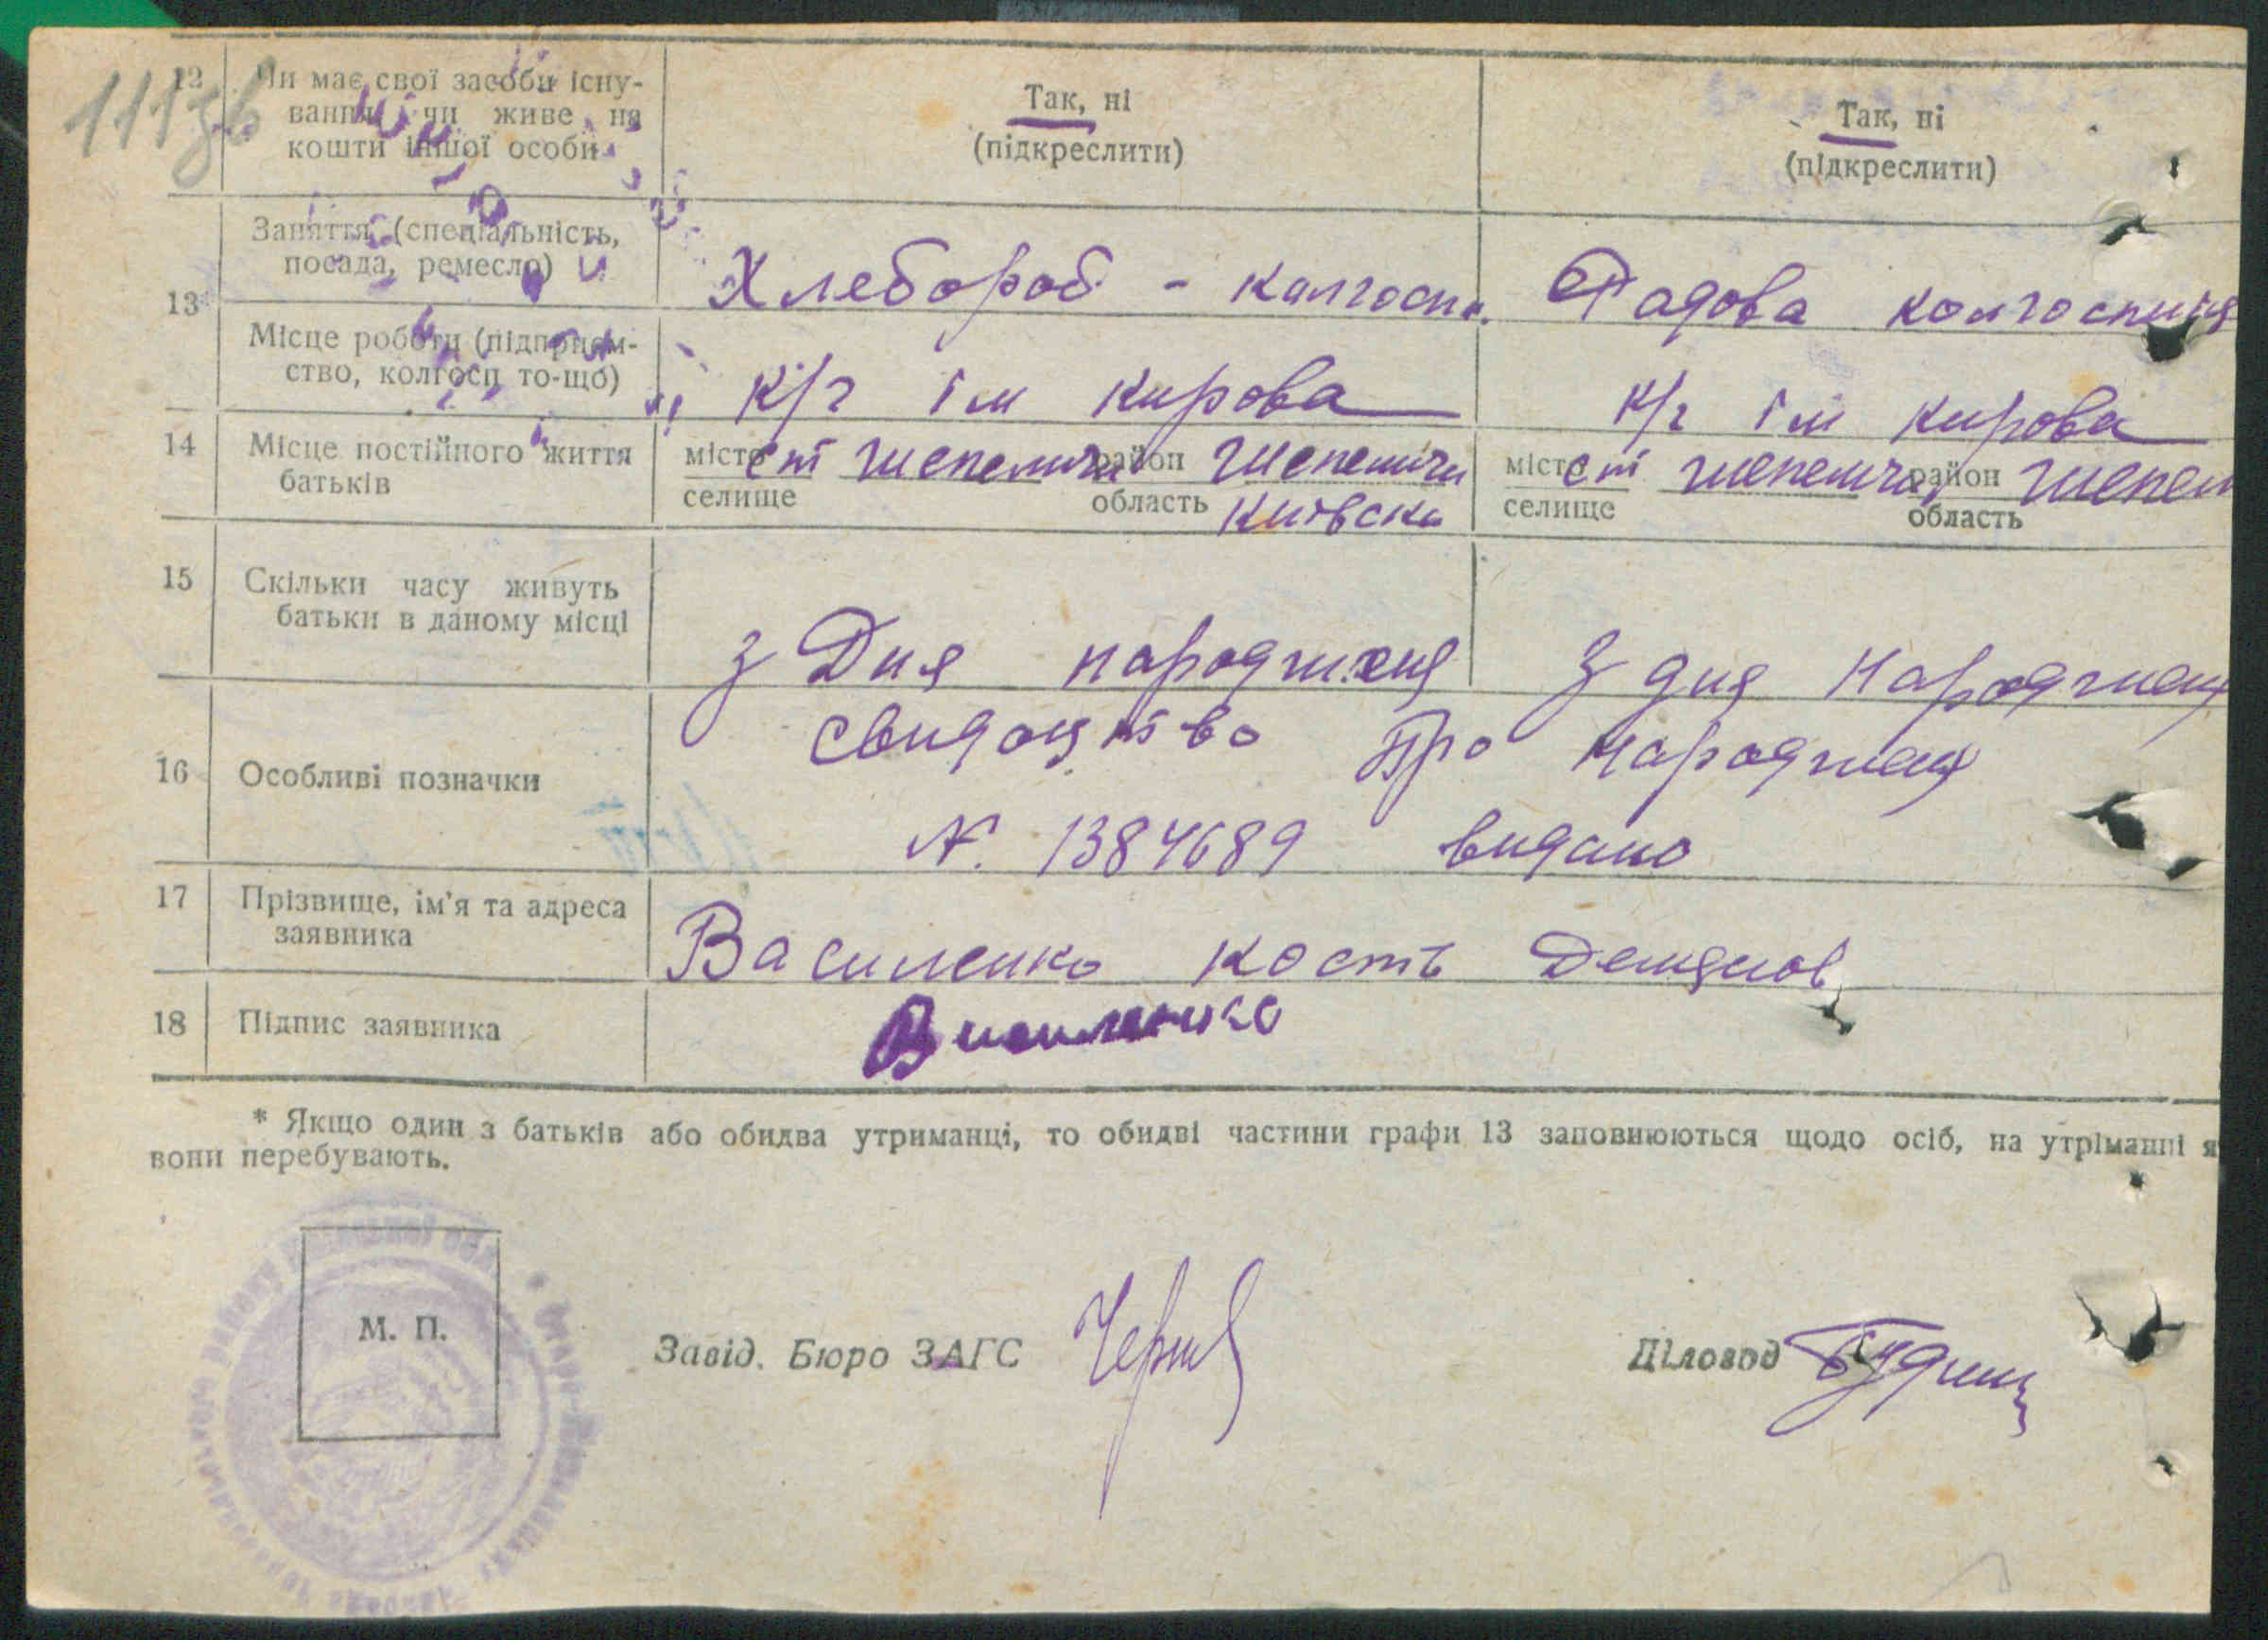 111зв
12 Чи має свої засоби існу-
вання чи живе на
кошти іншої особи
Так, ні
(підкреслити)
Так, ні
(підкреслити)
13
Заняття (спеціальність,
посада, ремесло)
Хлебороб - колгосп.
Радова колгоспниця
Місце роботи (підприєм-
ство, колгосп то-що)
к/г ім Кирова
к/г ім Кирова
14 Місце постійного життя
батьків
місто
селище
ст Шепеличи
район Шепеличи
область Київска
місто
селище
ст Шепеличи
район Шепел
область
15 Скільки часу живуть
батьки в даному місці
з Дня народження
З дня Народження
16 Особливі позначки
Свидоцтво про народження
N. 1384689 видано
17 Прізвище, ім'я та адреса
заявника
Василенко Кость Демянов
18 Підпис заявника
Василенко
* Якщо один з батьків або обидва утриманці, то обидві частини графи 13 заповнюються щодо осіб, на утріманні я
вони перебувають.
М. П.
Завід. Бюро ЗАГС
Діловод